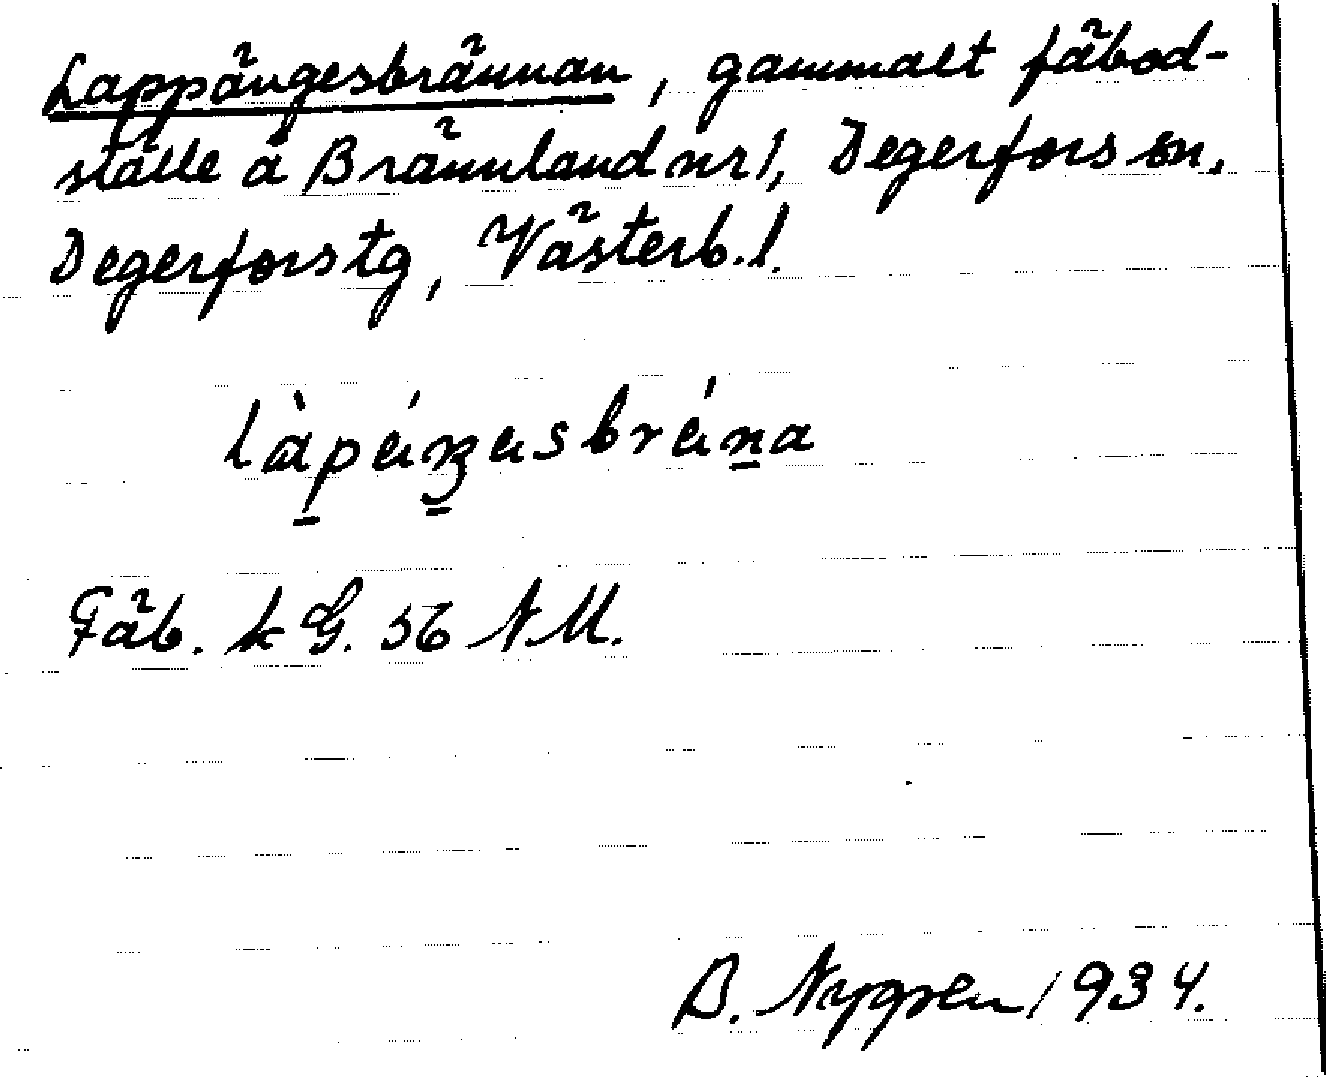 Lappängesbrännan, gammalt fäbod-
ställe å Brännland nr 1, Degerfors sn,
Degerfors tg, Västerb. l.
Fäb. k G. 56 NM.
B. Nygren 1934.